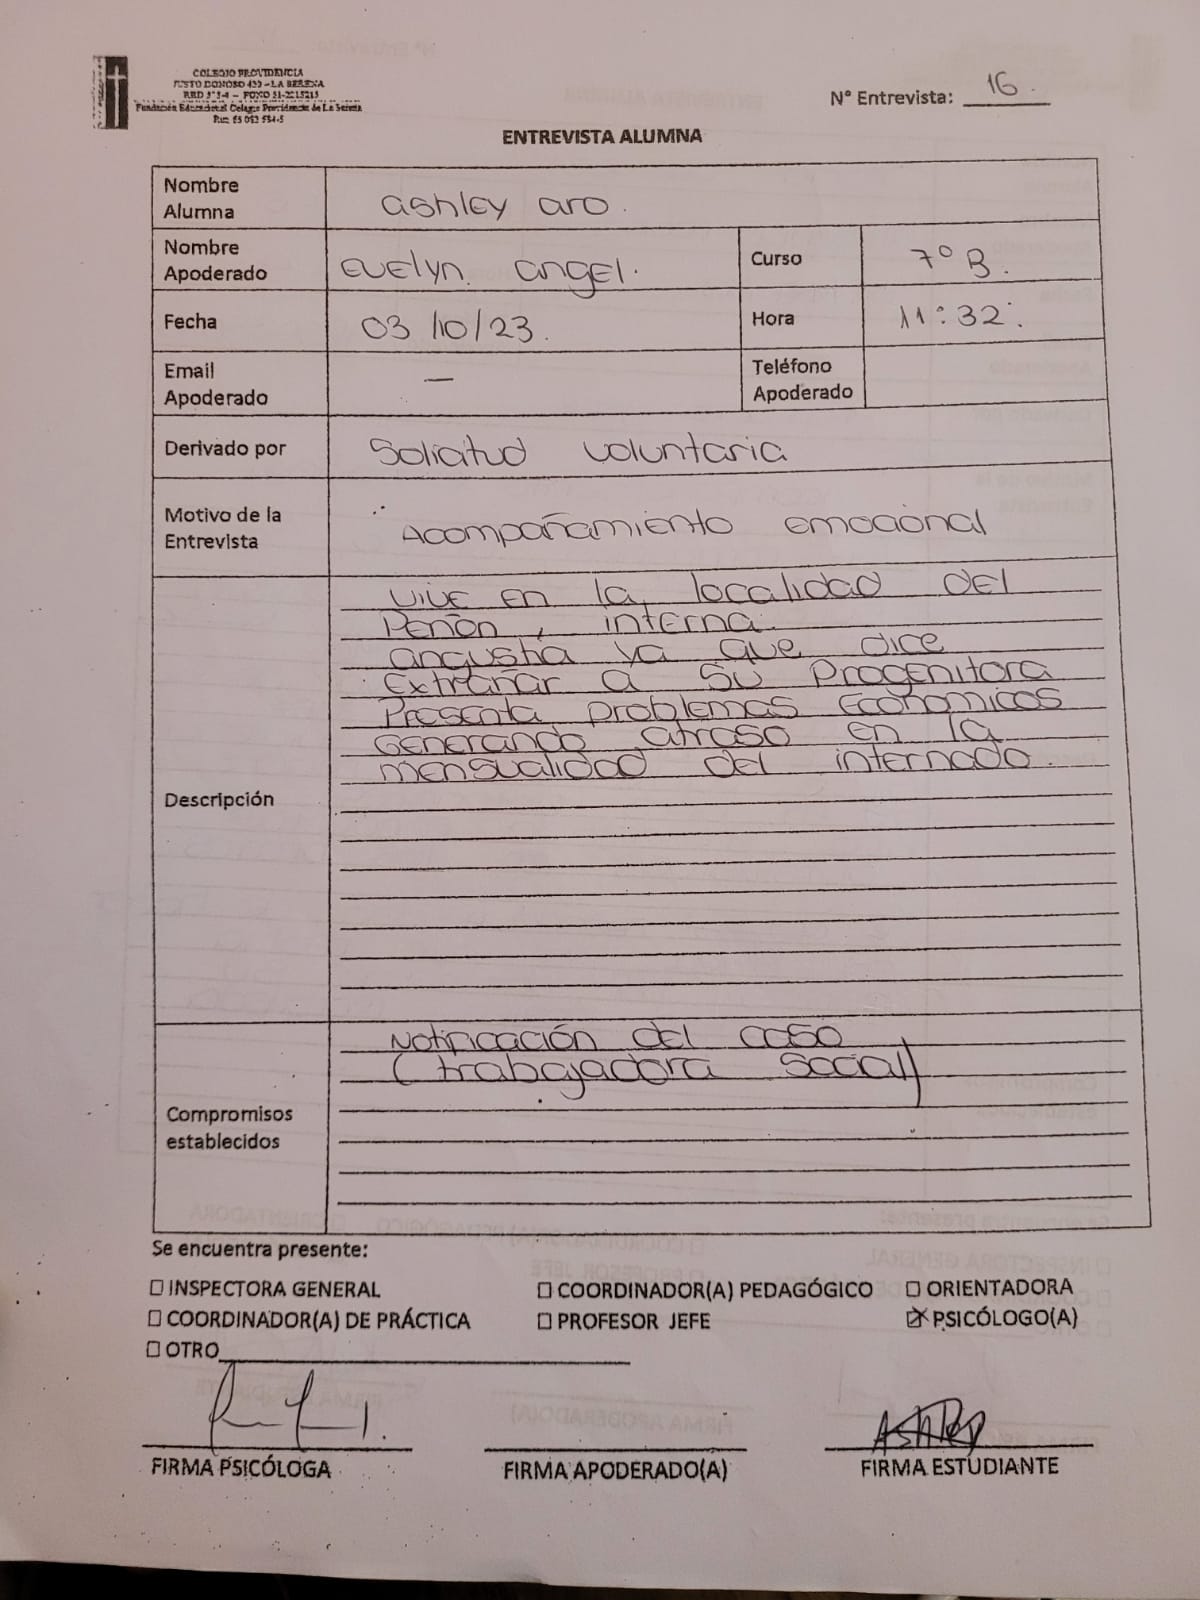 COLEGIO PROVIDENCIA
JUSTO DONOSO 420 - LA SERENA
Fundación Educacional Colegio Providencia de La Serena
N° Entrevista: 16.
ENTREVISTA ALUMNA
Nombre Alumna Ashley aro.
Nombre Apoderado Evelyn angel. Curso 7° B.
Fecha 03/10/23. Hora 11:32.
Email Apoderado — Teléfono Apoderado
Derivado por Solicitud voluntaria
Motivo de la Entrevista Acompañamiento emocional
Descripción
vive en la localidad del
Peñón, interna.
angustia ya que dice
extrañar a su Progenitora
Presenta problemas económicos
Generando atraso en la
mensualidad del internado.
Compromisos establecidos
Notificación del caso
(trabajadora Social)
Se encuentra presente:
☐ INSPECTORA GENERAL ☐ COORDINADOR(A) PEDAGÓGICO ☐ ORIENTADORA
☐ COORDINADOR(A) DE PRÁCTICA ☐ PROFESOR JEFE ☒ PSICÓLOGO(A)
☐ OTRO
Ashley
FIRMA PSICÓLOGA FIRMA APODERADO(A) FIRMA ESTUDIANTE